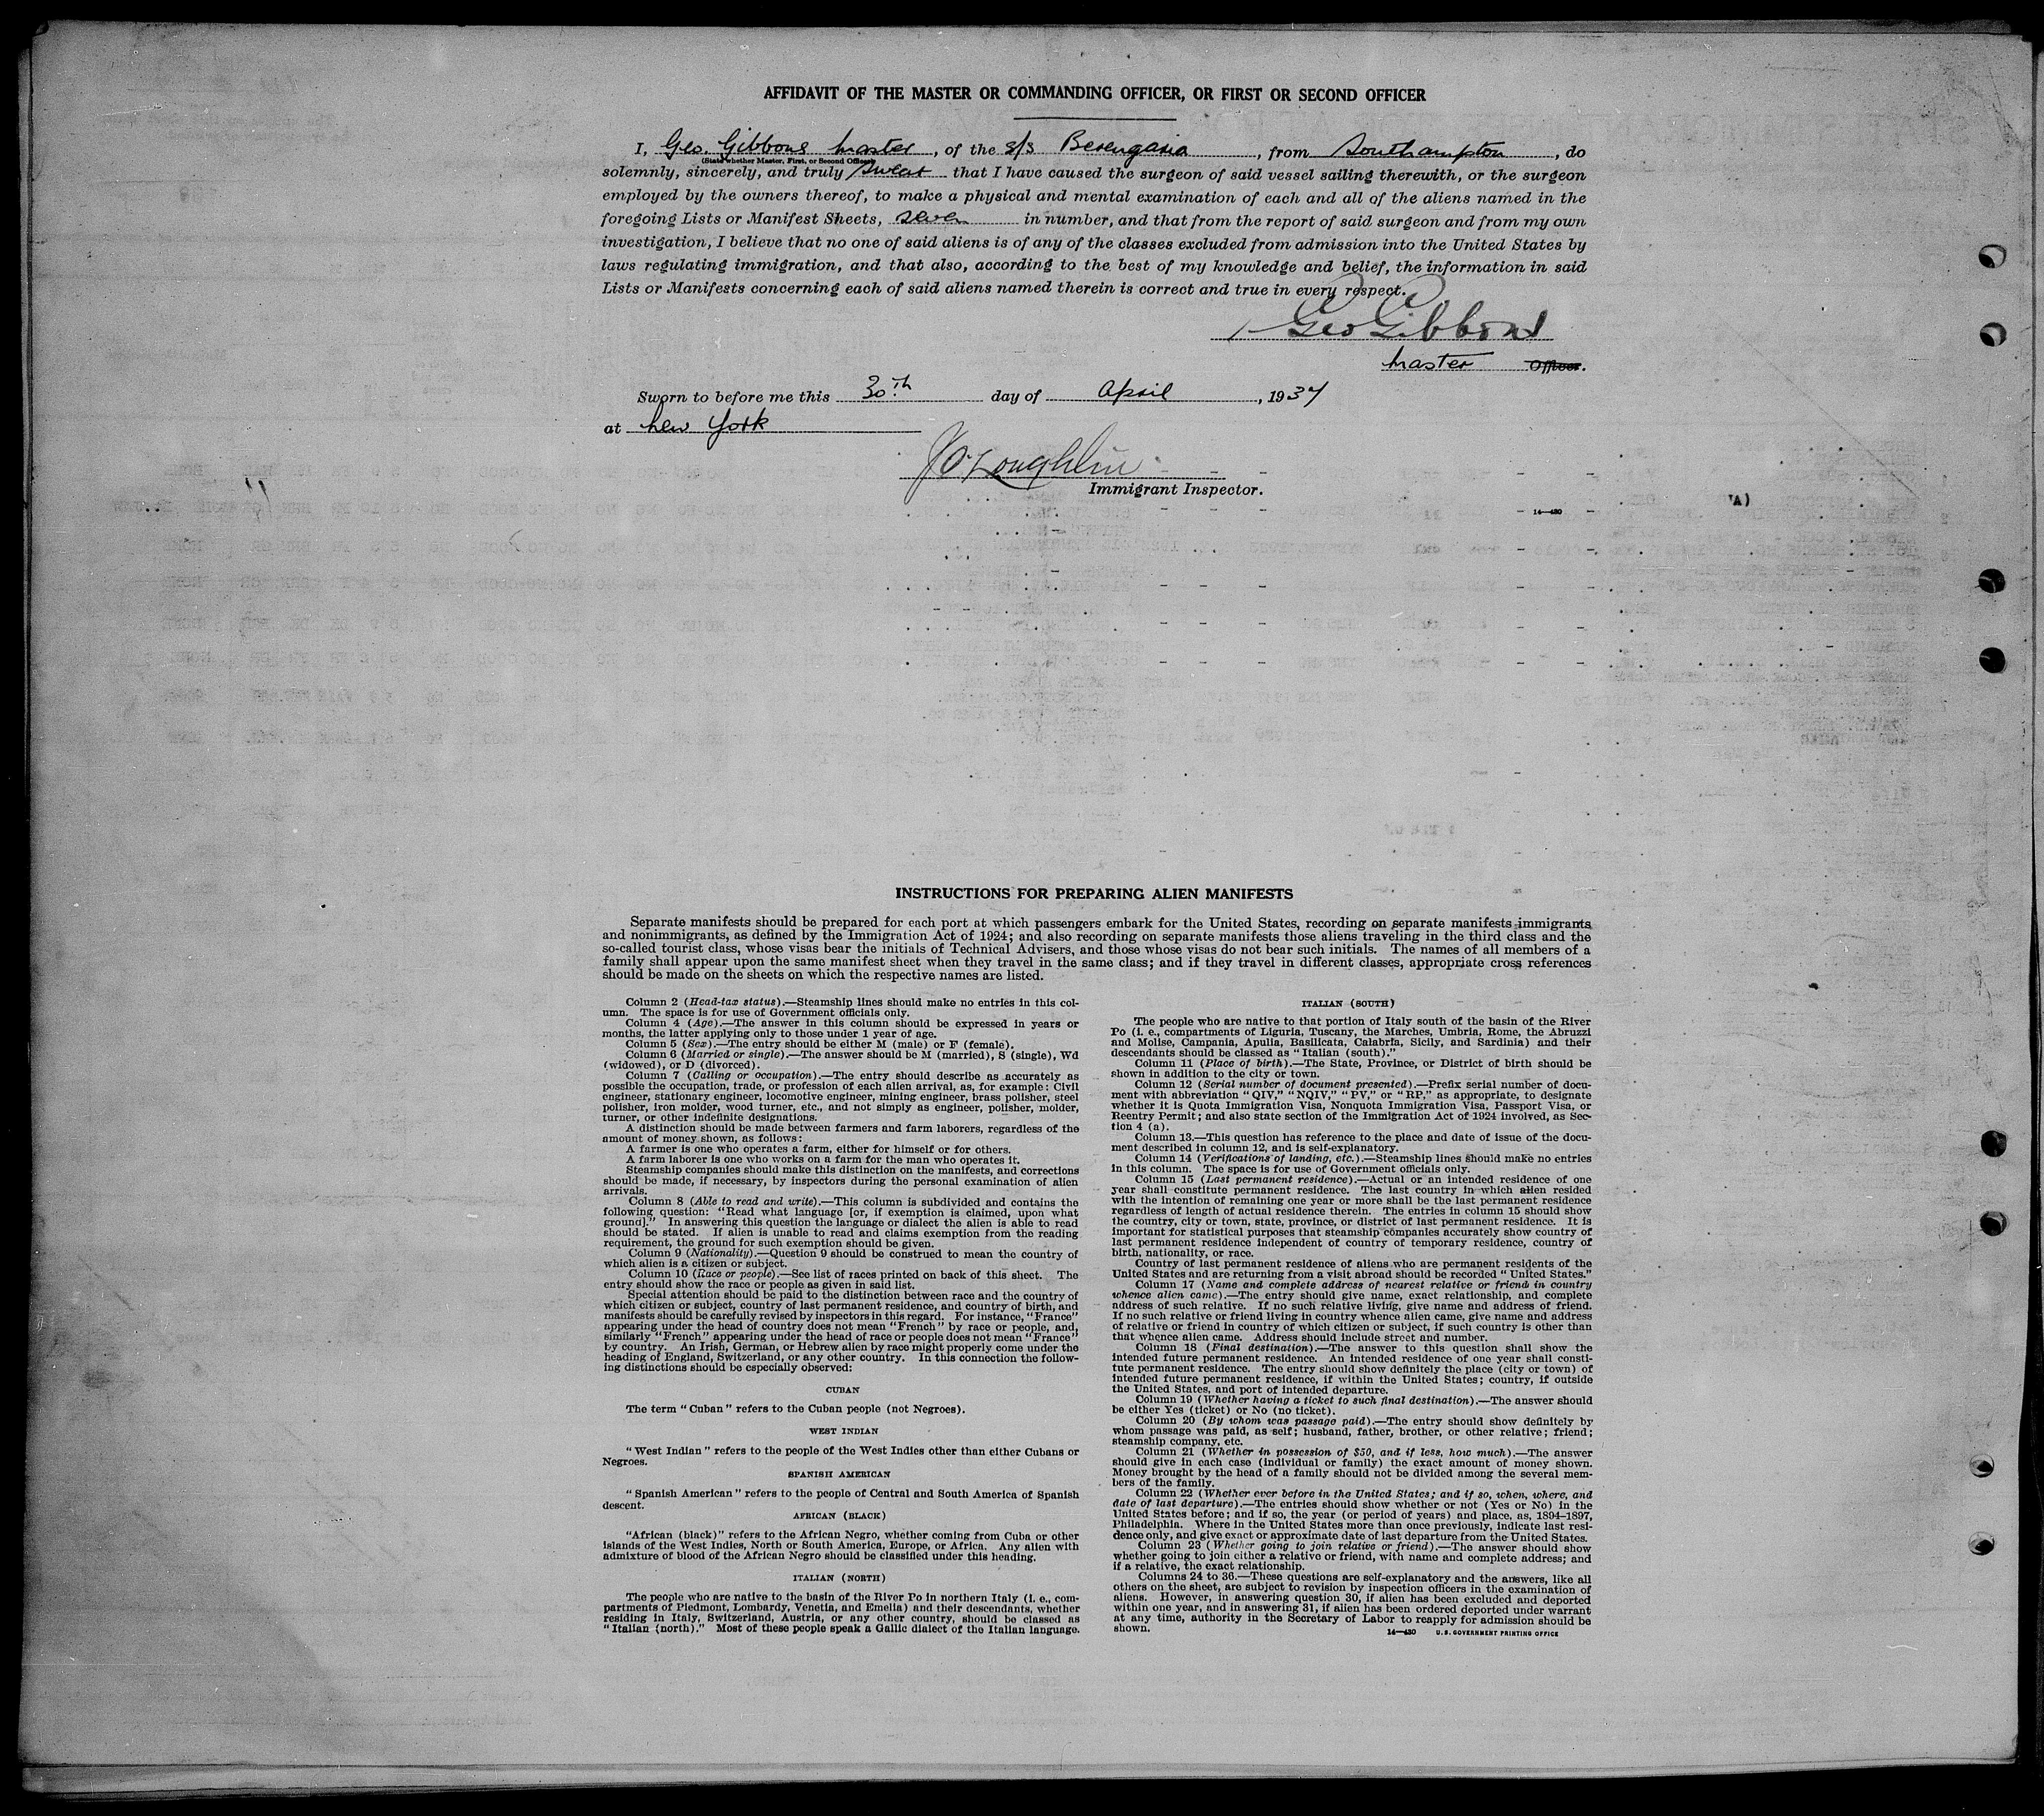 AFFIDAVIT OF THE MASTER OR COMMANDING OFFICER, OR FIRST OR SECOND OFFICER
I, Geo. Gibbons Master, of the s/s Berengaria, from Southampton, do
(State whether Master, First, or Second Officer)
solemnly, sincerely, and truly swear that I have caused the surgeon of said vessel sailing therewith, or the surgeon
employed by the owners thereof, to make a physical and mental examination of each and all of the aliens named in the
foregoing Lists or Manifest Sheets, seven in number, and that from the report of said surgeon and from my own
investigation, I believe that no one of said aliens is of any of the classes excluded from admission into the United States by
laws regulating immigration, and that also, according to the best of my knowledge and belief, the information in said
Lists or Manifests concerning each of said aliens named therein is correct and true in every respect.
Geo Gibbons
Master Officer.
Sworn to before me this 30th day of April, 1937
at New York
J O'Loughlin
Immigrant Inspector.
14—430
INSTRUCTIONS FOR PREPARING ALIEN MANIFESTS
Separate manifests should be prepared for each port at which passengers embark for the United States, recording on separate manifests immigrants
and nonimmigrants, as defined by the Immigration Act of 1924; and also recording on separate manifests those aliens traveling in the third class and the
so-called tourist class, whose visas bear the initials of Technical Advisers, and those whose visas do not bear such initials. The names of all members of a
family shall appear upon the same manifest sheet when they travel in the same class; and if they travel in different classes, appropriate cross references
should be made on the sheets on which the respective names are listed.
Column 2 (Head-tax status).—Steamship lines should make no entries in this col-
umn. The space is for use of Government officials only.
Column 4 (Age).—The answer in this column should be expressed in years or
months, the latter applying only to those under 1 year of age.
Column 5 (Sex).—The entry should be either M (male) or F (female).
Column 6 (Married or single).—The answer should be M (married), S (single), Wd
(widowed), or D (divorced).
Column 7 (Calling or occupation).—The entry should describe as accurately as
possible the occupation, trade, or profession of each alien arrival, as, for example: Civil
engineer, stationary engineer, locomotive engineer, mining engineer, brass polisher, steel
polisher, iron molder, wood turner, etc., and not simply as engineer, polisher, molder,
turner, or other indefinite designations.
A distinction should be made between farmers and farm laborers, regardless of the
amount of money shown, as follows:
A farmer is one who operates a farm, either for himself or for others.
A farm laborer is one who works on a farm for the man who operates it.
Steamship companies should make this distinction on the manifests, and corrections
should be made, if necessary, by inspectors during the personal examination of alien
arrivals.
Column 8 (Able to read and write).—This column is subdivided and contains the
following question: "Read what language [or, if exemption is claimed, upon what
ground]." In answering this question the language or dialect the alien is able to read
should be stated. If alien is unable to read and claims exemption from the reading
requirement, the ground for such exemption should be given.
Column 9 (Nationality).—Question 9 should be construed to mean the country of
which alien is a citizen or subject.
Column 10 (Race or people).—See list of races printed on back of this sheet. The
entry should show the race or people as given in said list.
Special attention should be paid to the distinction between race and the country of
which citizen or subject, country of last permanent residence, and country of birth, and
manifests should be carefully revised by inspectors in this regard. For instance, "France"
appearing under the head of country does not mean "French" by race or people, and,
similarly "French" appearing under the head of race or people does not mean "France"
by country. An Irish, German, or Hebrew alien by race might properly come under the
heading of England, Switzerland, or any other country. In this connection the follow-
ing distinctions should be especially observed:
CUBAN
The term "Cuban" refers to the Cuban people (not Negroes).
WEST INDIAN
"West Indian" refers to the people of the West Indies other than either Cubans or
Negroes.
SPANISH AMERICAN
"Spanish American" refers to the people of Central and South America of Spanish
descent.
AFRICAN (BLACK)
"African (black)" refers to the African Negro, whether coming from Cuba or other
islands of the West Indies, North or South America, Europe, or Africa. Any alien with
admixture of blood of the African Negro should be classified under this heading.
ITALIAN (NORTH)
The people who are native to the basin of the River Po in northern Italy (i. e., com-
partments of Piedmont, Lombardy, Venetia, and Emelia) and their descendants, whether
residing in Italy, Switzerland, Austria, or any other country, should be classed as
"Italian (north)." Most of these people speak a Gallic dialect of the Italian language.
ITALIAN (SOUTH)
The people who are native to that portion of Italy south of the basin of the River
Po (i. e., compartments of Liguria, Tuscany, the Marches, Umbria, Rome, the Abruzzi
and Molise, Campania, Apulia, Basilicata, Calabria, Sicily, and Sardinia) and their
descendants should be classed as "Italian (south)."
Column 11 (Place of birth).—The State, Province, or District of birth should be
shown in addition to the city or town.
Column 12 (Serial number of document presented).—Prefix serial number of docu-
ment with abbreviation "QIV," "NQIV," "PV," or "RP," as appropriate, to designate
whether it is Quota Immigration Visa, Nonquota Immigration Visa, Passport Visa, or
Reentry Permit; and also state section of the Immigration Act of 1924 involved, as Sec-
tion 4 (a).
Column 13.—This question has reference to the place and date of issue of the docu-
ment described in column 12, and is self-explanatory.
Column 14 (Verifications of landing, etc.).—Steamship lines should make no entries
in this column. The space is for use of Government officials only.
Column 15 (Last permanent residence).—Actual or an intended residence of one
year shall constitute permanent residence. The last country in which alien resided
with the intention of remaining one year or more shall be the last permanent residence
regardless of length of actual residence therein. The entries in column 15 should show
the country, city or town, state, province, or district of last permanent residence. It is
important for statistical purposes that steamship companies accurately show country of
last permanent residence independent of country of temporary residence, country of
birth, nationality, or race.
Country of last permanent residence of aliens who are permanent residents of the
United States and are returning from a visit abroad should be recorded "United States."
Column 17 (Name and complete address of nearest relative or friend in country
whence alien came).—The entry should give name, exact relationship, and complete
address of such relative. If no such relative living, give name and address of friend.
If no such relative or friend living in country whence alien came, give name and address
of relative or friend in country of which citizen or subject, if such country is other than
that whence alien came. Address should include street and number.
Column 18 (Final destination).—The answer to this question shall show the
intended future permanent residence. An intended residence of one year shall consti-
tute permanent residence. The entry should show definitely the place (city or town) of
intended future permanent residence, if within the United States; country, if outside
the United States, and port of intended departure.
Column 19 (Whether having a ticket to such final destination).—The answer should
be either Yes (ticket) or No (no ticket).
Column 20 (By whom was passage paid).—The entry should show definitely by
whom passage was paid, as self; husband, father, brother, or other relative; friend;
steamship company, etc.
Column 21 (Whether in possession of $50, and if less, how much).—The answer
should give in each case (individual or family) the exact amount of money shown.
Money brought by the head of a family should not be divided among the several mem-
bers of the family.
Column 22 (Whether ever before in the United States; and if so, when, where, and
date of last departure).—The entries should show whether or not (Yes or No) in the
United States before; and if so, the year (or period of years) and place, as, 1894-1897,
Philadelphia. Where in the United States more than once previously, indicate last resi-
dence only, and give exact or approximate date of last departure from the United States.
Column 23 (Whether going to join relative or friend).—The answer should show
whether going to join either a relative or friend, with name and complete address; and
if a relative, the exact relationship.
Columns 24 to 36.—These questions are self-explanatory and the answers, like all
others on the sheet, are subject to revision by inspection officers in the examination of
aliens. However, in answering question 30, if alien has been excluded and deported
within one year, and in answering 31, if alien has been ordered deported under warrant
at any time, authority in the Secretary of Labor to reapply for admission should be
shown.
14—430 U. S. GOVERNMENT PRINTING OFFICE